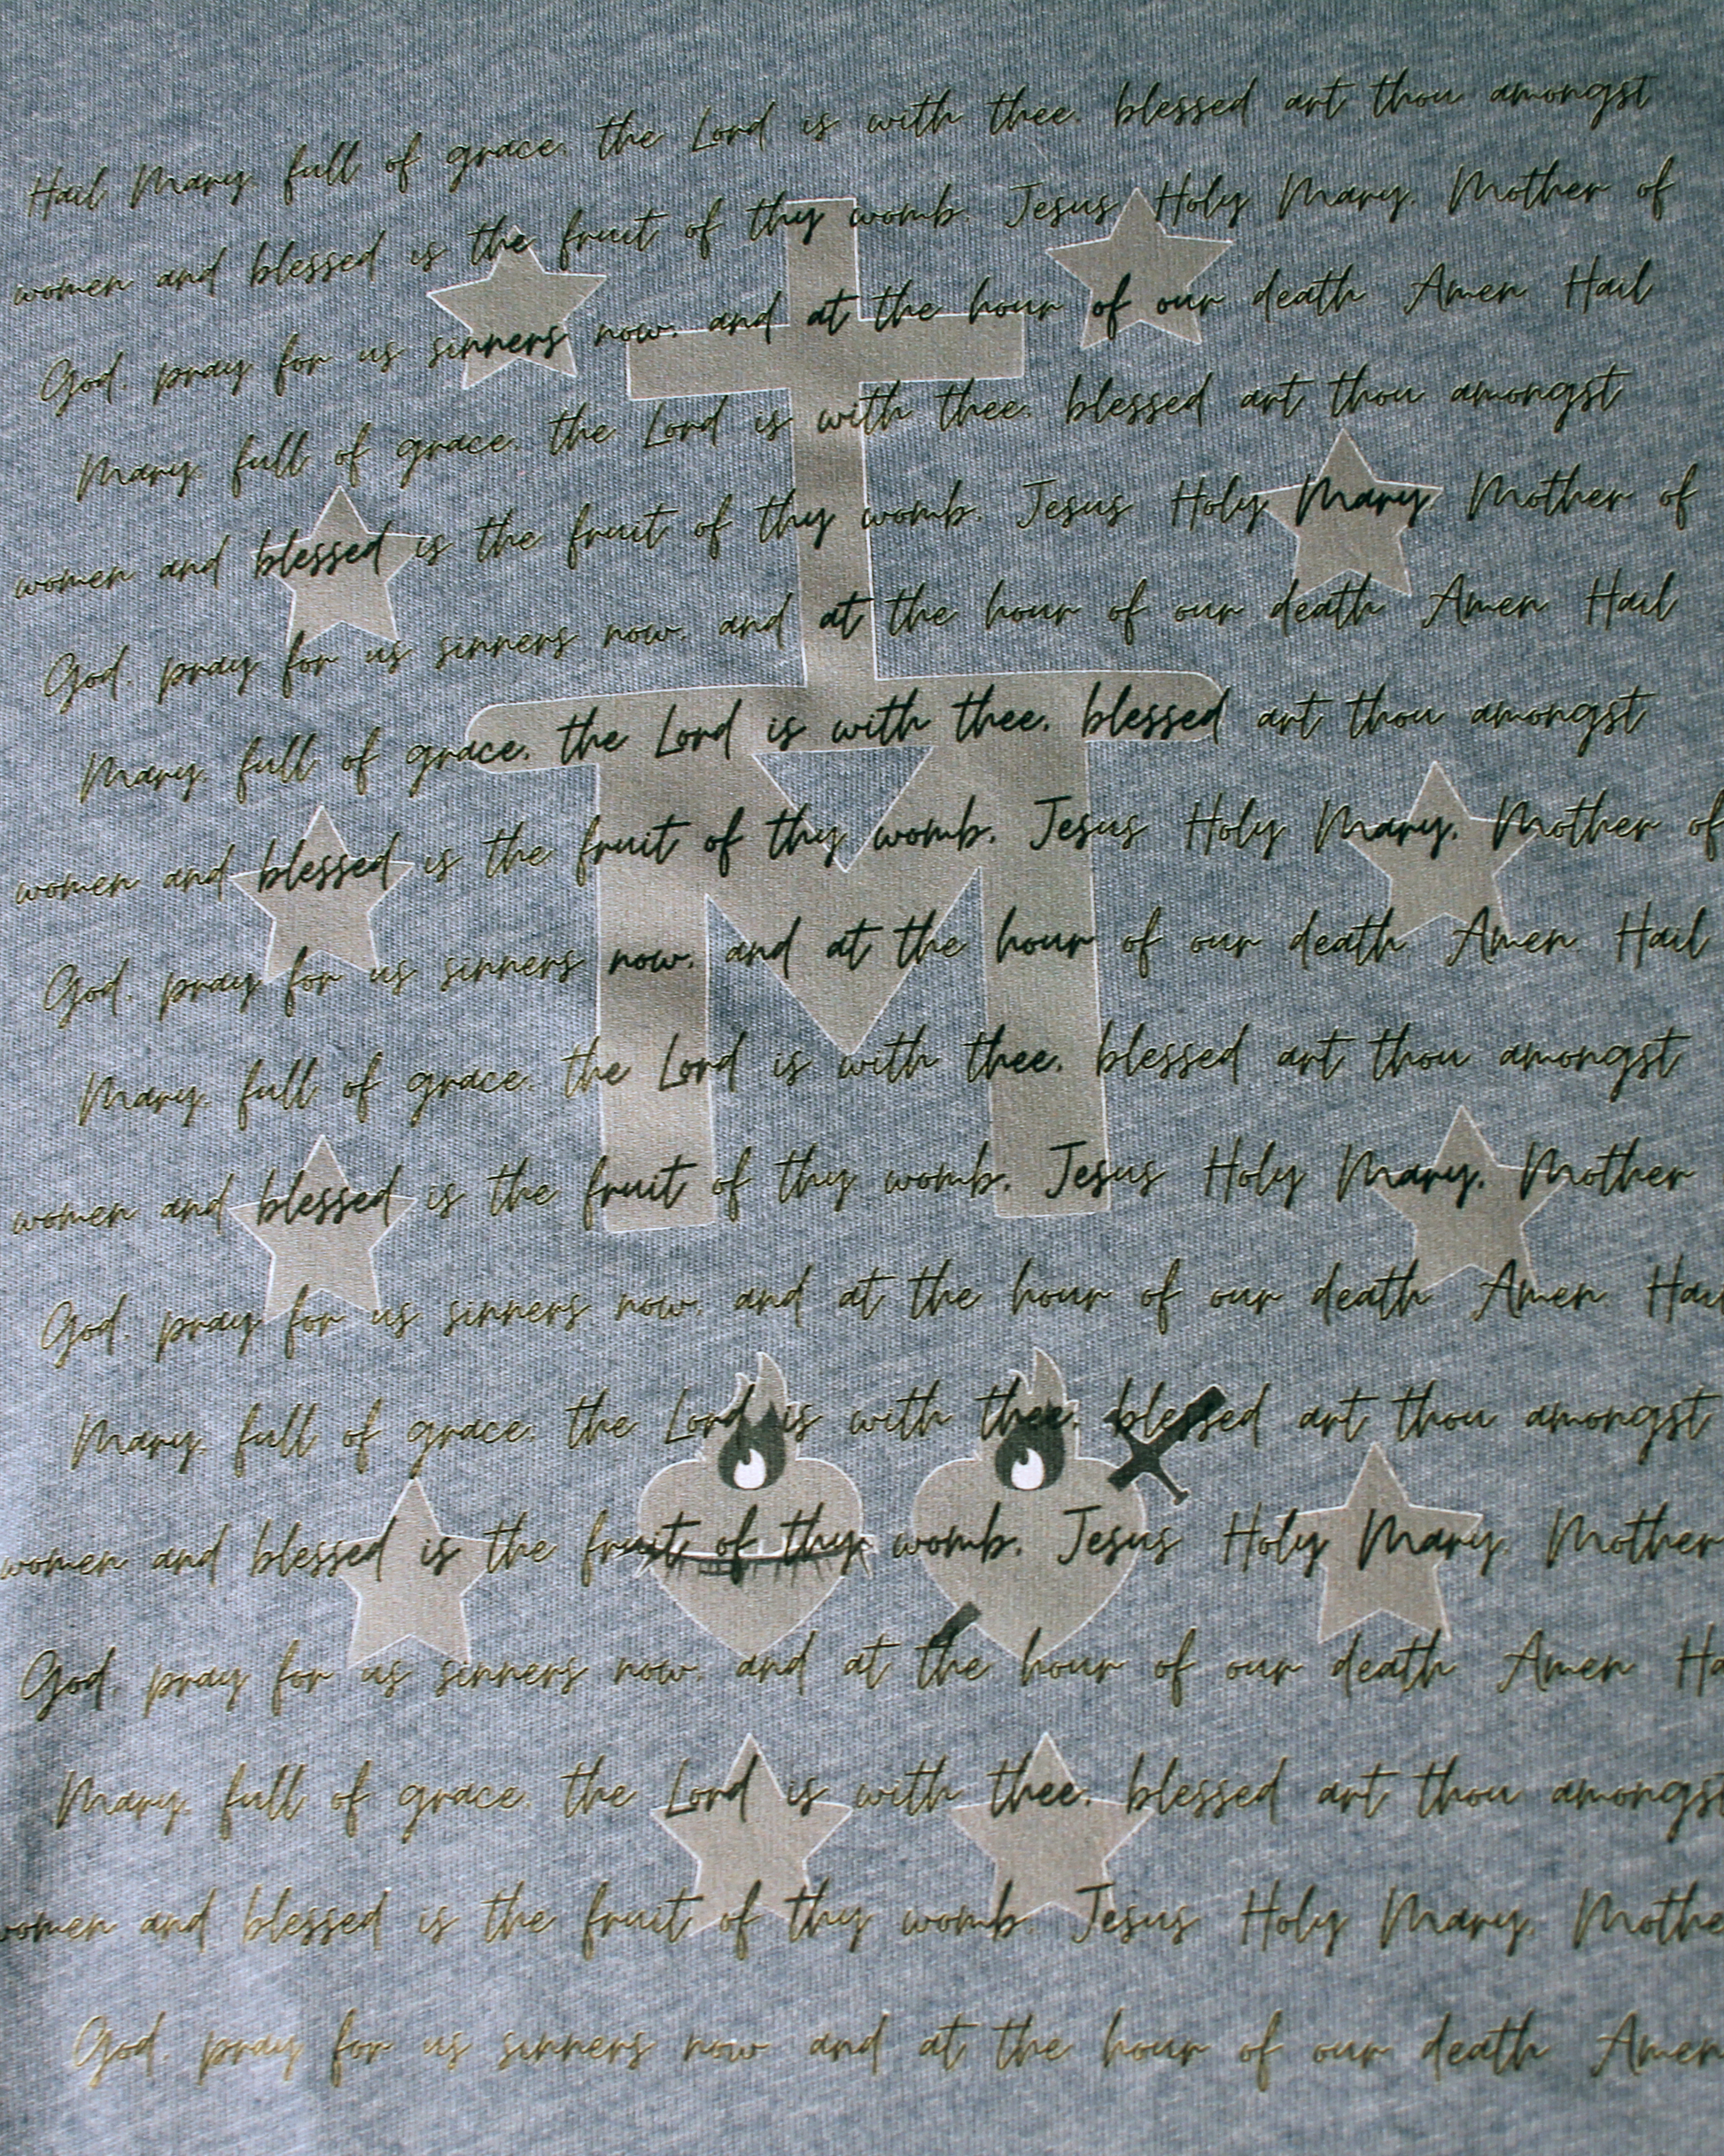 Hail Mary, full of grace, the Lord is with thee, blessed art thou amongst
women and blessed is the fruit of thy womb, Jesus Holy Mary, Mother of
God, pray for us sinners now, and at the hour of our death Amen Hail
Mary, full of grace, the Lord is with thee, blessed art thou amongst
women and blessed is the fruit of thy womb, Jesus Holy Mary Mother of
God, pray for us sinners now, and at the hour of our death Amen Hail
Mary, full of grace, the Lord is with thee, blessed art thou amongst
women and blessed is the fruit of thy womb, Jesus Holy Mary, Mother of
God, pray for us sinners now, and at the hour of our death Amen Hail
Mary, full of grace, the Lord is with thee, blessed art thou amongst
women and blessed is the fruit of thy womb, Jesus Holy Mary, Mother
God, pray for us sinners now, and at the hour of our death Amen Hail
Mary, full of grace, the Lord is with thee, blessed art thou amongst
women and blessed is the fruit of thy womb, Jesus Holy Mary, Mother
God, pray for us sinners now, and at the hour of our death Amen Ha
Mary, full of grace, the Lord is with thee, blessed art thou amongst
women and blessed is the fruit of thy womb, Jesus Holy Mary, Mothe
God, pray for us sinners now and at the hour of our death Amen
M